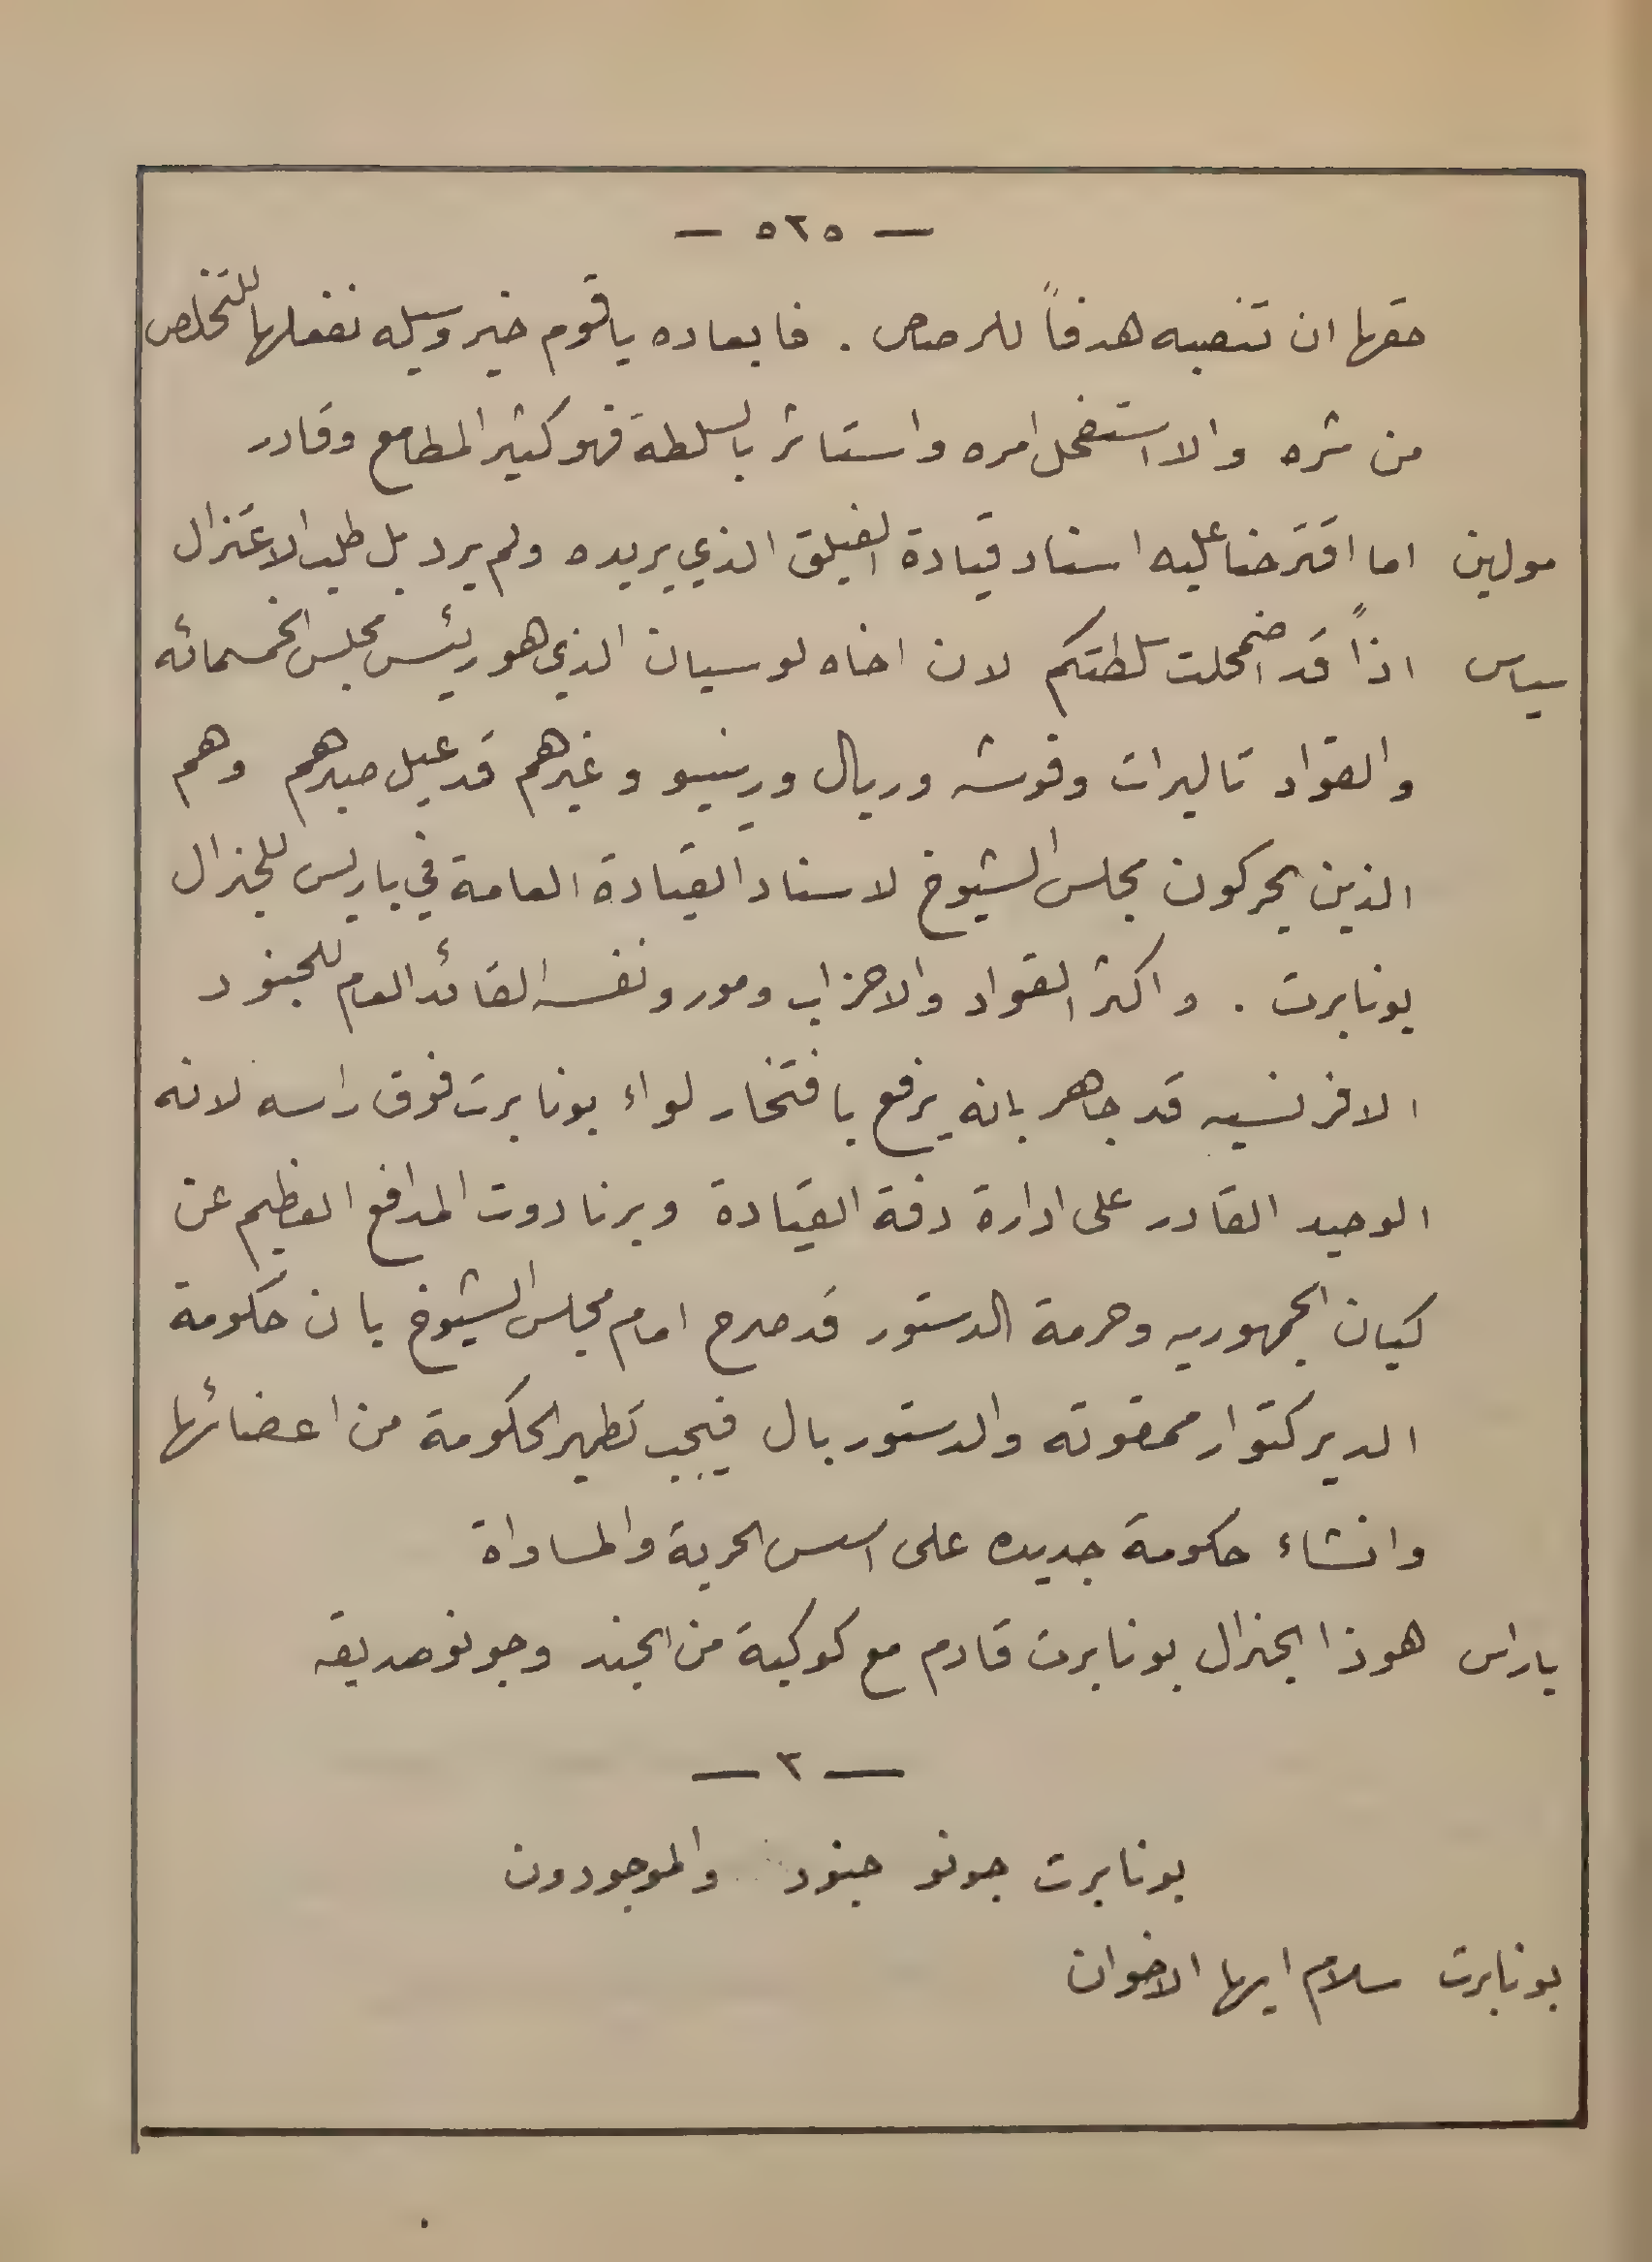 — ٥٢٥ —
حقها ان تنصبه هدفاً للرصاص . فابعاده يا قوم خير وسيله نفعلها للتخلص
من شره والا استفحل امره واستاثر بالسلطة فهو كثير المطامع وقادر
مولين اما اقترحنا عليه اسناد قيادة الفيلق الذي يريده ولم يرد بل طلب الاعتزال
سياس اذاً قد اضمحلت سلطتكم لان اخاه لوسيان الذي هو رئيس مجلس الخمسمائه
والقواد تاليرات وفوشه وريال ورينيو وغيرهم قد عيل صبرهم وهم
الذين يحركون مجلس الشيوخ لاسناد القيادة العامة في باريس للجنرال
بونابرت . واكثر القواد والاحزاب ومورو نفسه القائد العام للجنود
الافرنسيه قد جاهر بانه يرفع بافتخار لواء بونابرت فوق راسه لانه
الوحيد القادر على ادارة دفة القيادة وبرنادوت المدافع العظيم عن
كيان الجمهوريه وحرمة الدستور قد صرح امام مجلس الشيوخ بان حكومة
الديركتوار ممقوته والدستور بال فيجب تطهير الحكومة من اعضائها
وانشاء حكومة جديده على اسس الحرية والمساواة
باراس هوذا الجنرال بونابرت قادم مع كوكبة من الجند وجونو صديقه
— ٣ —
بونابرت جونو جنود والموجودون
بونابرت سلام ايها الاخوان